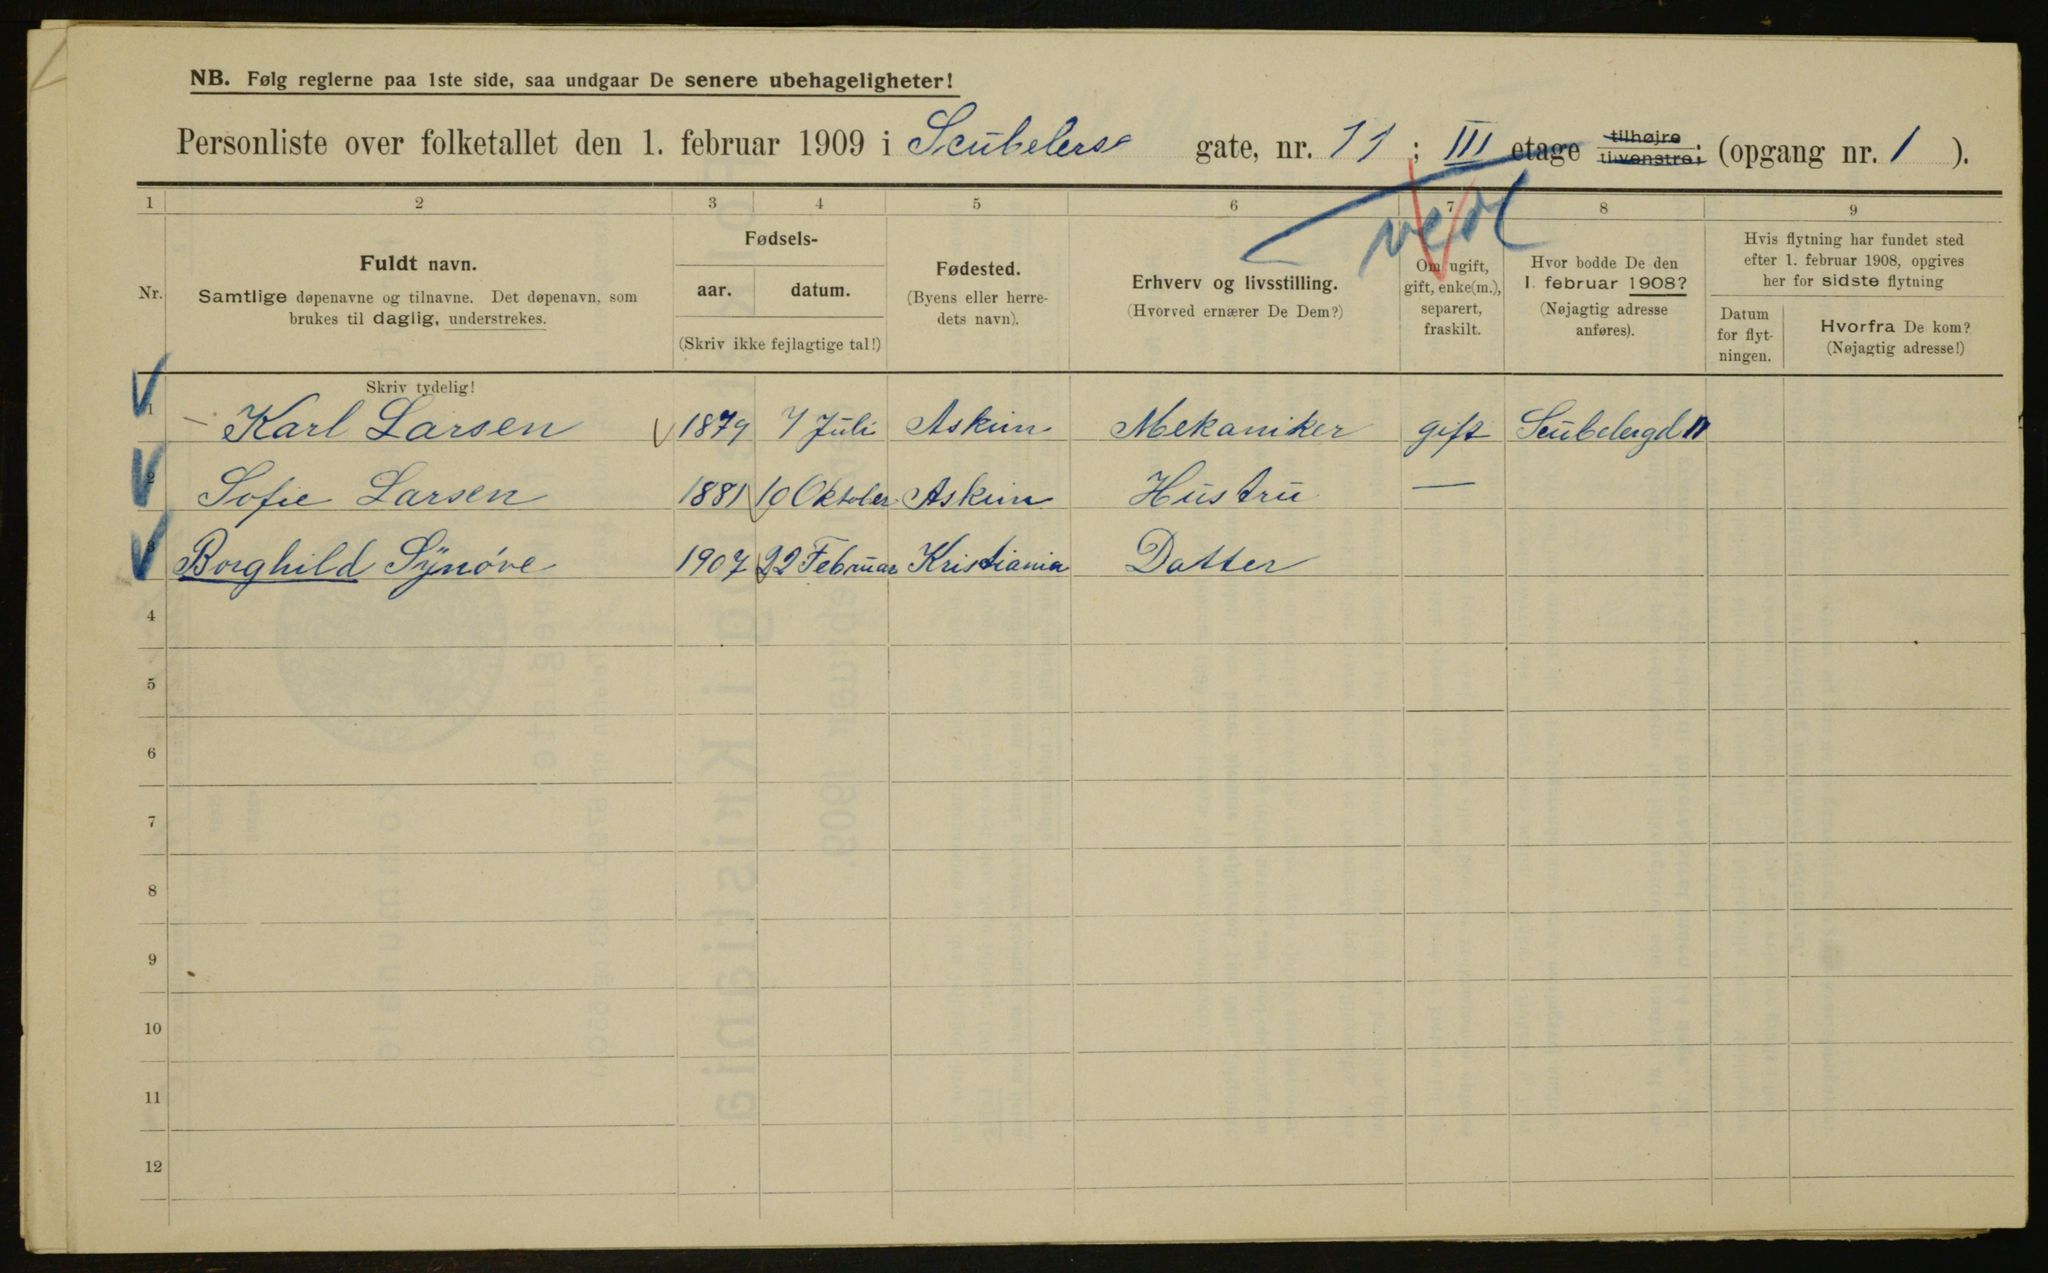 NB. Følg reglerne paa 1ste side, saa undgaar De senere ubehageligheter!
Personliste over folketallet den 1. februar 1909 i Scubelers gate, nr. 11; III etage tilhøjre tilvenstre; (opgang nr. 1 ).
ved
1 2 3 4 5 6 7 8 9
Nr.
Fuldt navn.
Samtlige døpenavne og tilnavne. Det døpenavn, som
brukes til daglig, understrekes.
Fødsels-
aar. datum.
(Skriv ikke fejlagtige tal!)
Fødested.
(Byens eller herre-
dets navn).
Erhverv og livsstilling.
(Hvorved ernærer De Dem?)
Om ugift,
gift, enke(m.),
separert,
fraskilt.
Hvor bodde De den
1. februar 1908?
(Nøjagtig adresse
anføres).
Hvis flytning har fundet sted
efter 1. februar 1908, opgives
her for sidste flytning
Datum
for flyt-
ningen.
Hvorfra De kom?
(Nøjagtig adresse!)
Skriv tydelig!
1 Karl Larsen 1879 7 Juli Askim Mekaniker gift Scubelergd 11
2 Sofie Larsen 1881 10 Oktober Askim Hustru —
3 Borghild Synøve 1907 22 Februar Kristiania Datter
4
5
6
7
8
9
10
11
12